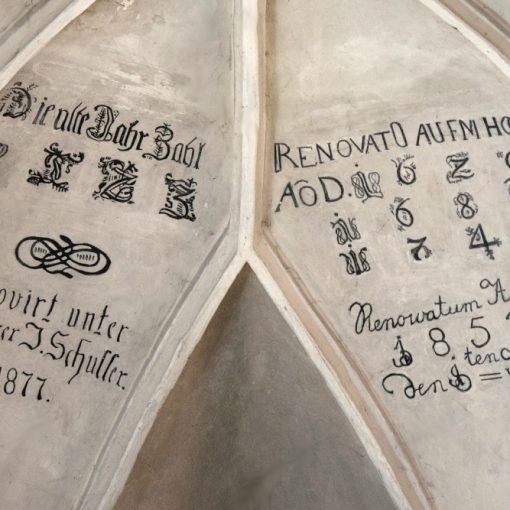 Die alte Jahr Zahl
ovirt unter
er J. Schuller.
1877.
RENOVATO AUFM HO
AÔD. i 6 2
i 6 8
i 7 4
Renowatum A
1 8 5
den 1 =